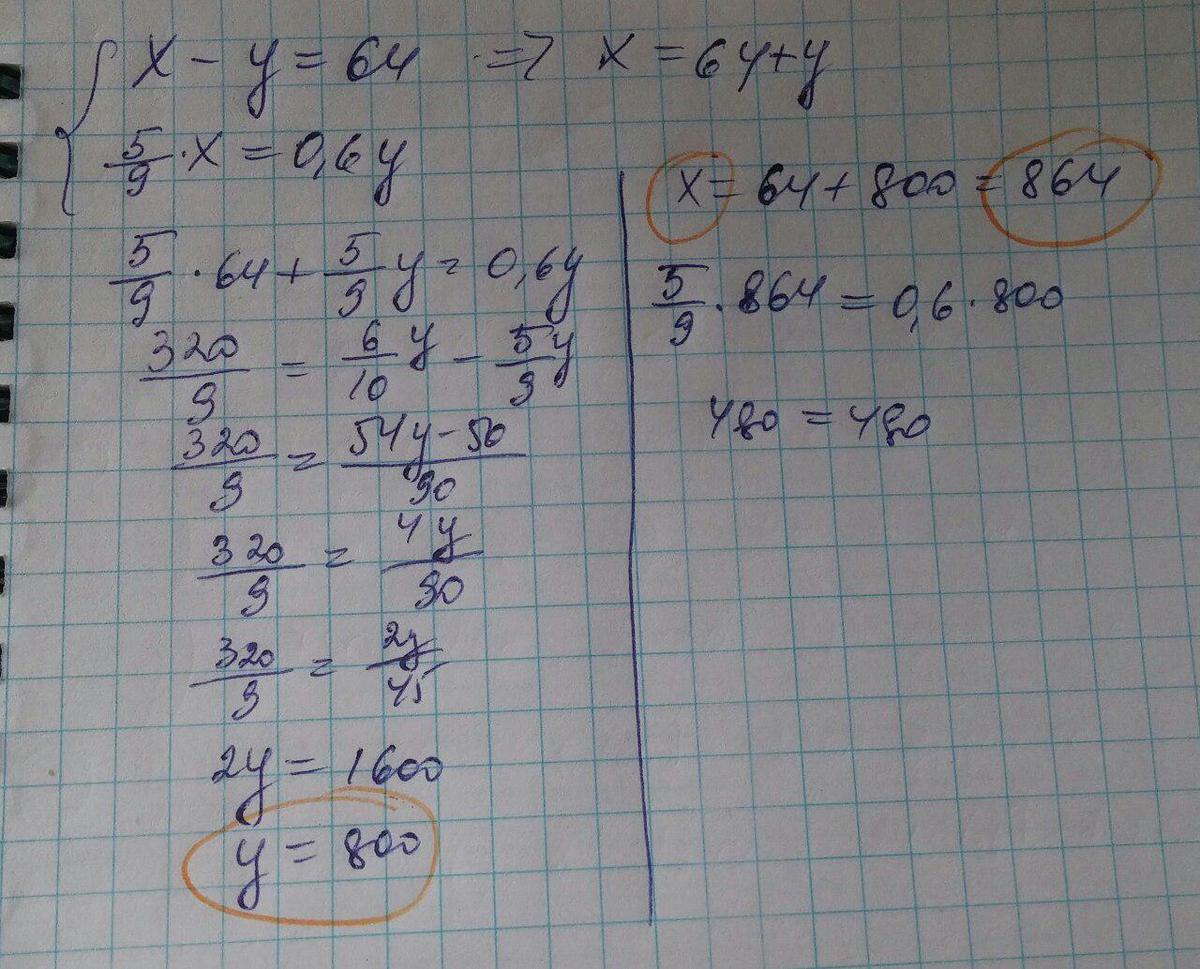 x - y = 64 => x = 64 + y
5/9 · x = 0,6y
5/9 · 64 + 5/9 y = 0,6y
320/9 = 6/10 y - 5/9 y
320/9 = 54y - 50/90
320/9 = 4y/90
320/9 = 2y/45
2y = 1600
y = 800
x = 64 + 800 = 864
5/9 · 864 = 0,6 · 800
480 = 480